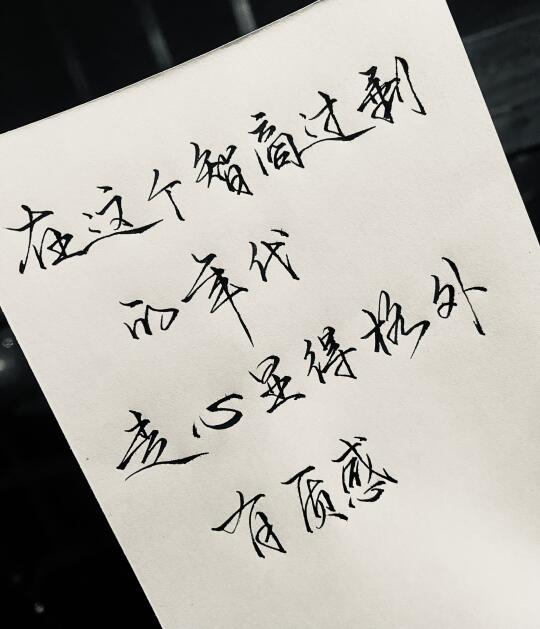 在这个智商过剩
的年代
走心显得格外
有质感